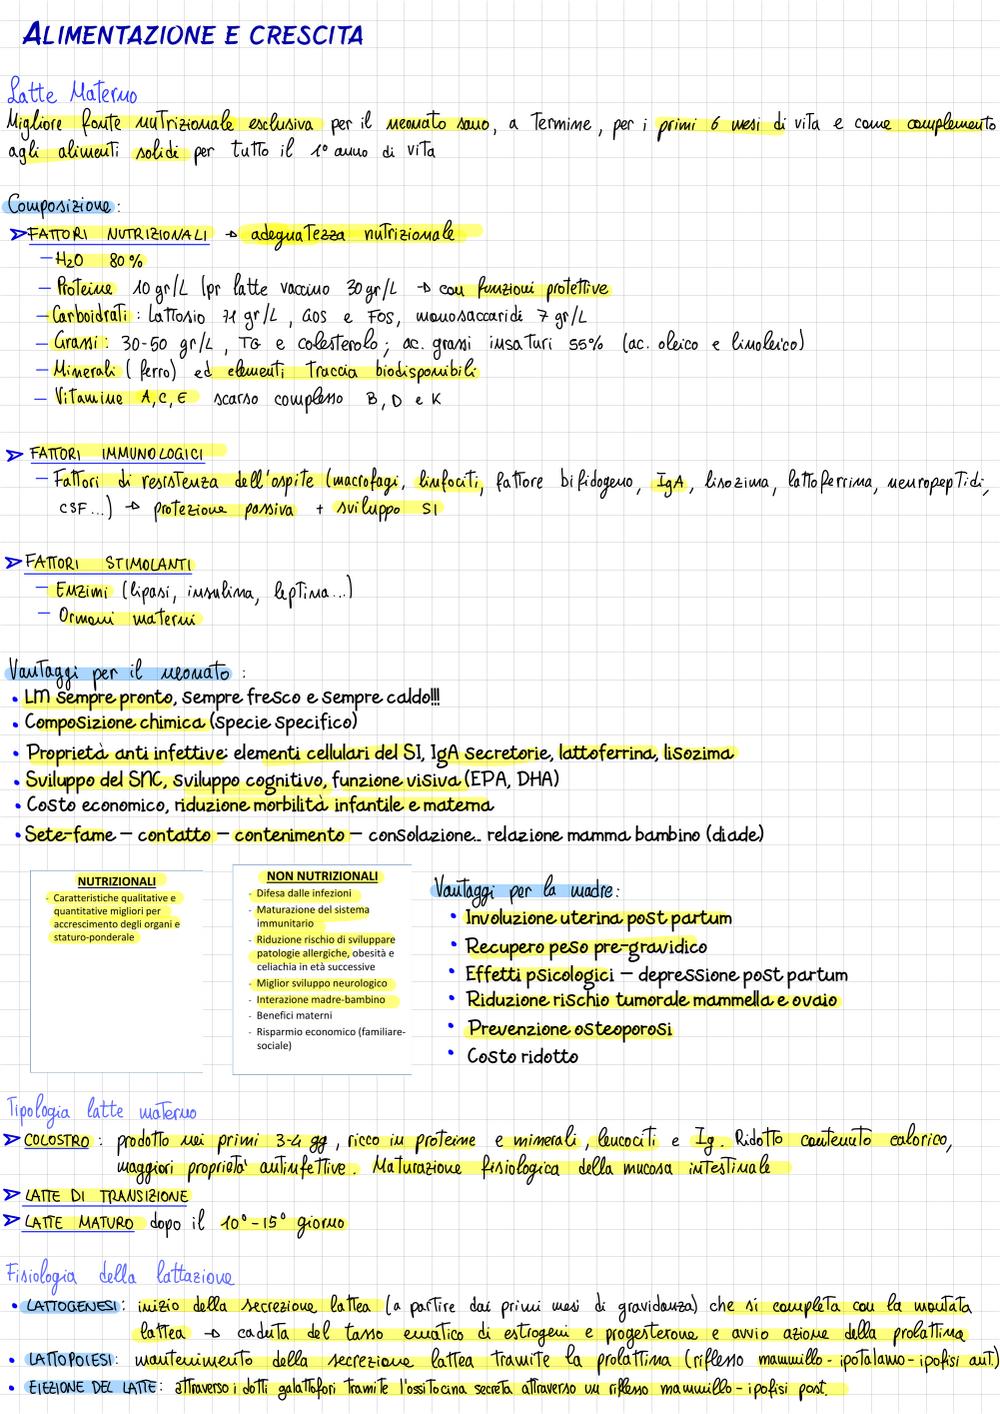 ALIMENTAZIONE E CRESCITA
Latte Materno
Migliore fonte nutrizionale esclusiva per il neonato sano, a termine, per i primi 6 mesi di vita e come complemento
agli alimenti solidi per tutto il 1° anno di vita
Composizione:
➤ FATTORI NUTRIZIONALI → adeguatezza nutrizionale
– H2O 80%
– Proteine 10 gr/L (pr latte vaccino 30 gr/L → con funzioni protettive
– Carboidrati: lattosio 71 gr/L, GOS e FOS, monosaccaridi 7 gr/L
– Grassi: 30-50 gr/L, TG e colesterolo; ac. grassi insaturi 55% (ac. oleico e linoleico)
– Minerali (ferro) ed elementi traccia biodisponibili
– Vitamine A, C, E scarso complesso B, D e K
➤ FATTORI IMMUNOLOGICI
– Fattori di resistenza dell'ospite (macrofagi, linfociti, fattore bifidogeno, IgA, lisozima, lattoferrina, neuropeptidi,
CSF...) → protezione passiva + sviluppo SI
➤ FATTORI STIMOLANTI
– Enzimi (lipasi, insulina, leptina...)
– Ormoni materni
Vantaggi per il neonato:
• LM sempre pronto, sempre fresco e sempre caldo!!!
• Composizione chimica (specie specifico)
• Proprietà anti infettive: elementi cellulari del SI, IgA secretorie, lattoferrina, lisozima
• Sviluppo del SNC, sviluppo cognitivo, funzione visiva (EPA, DHA)
• Costo economico, riduzione morbilità infantile e materna
• Sete-fame – contatto – contenimento – consolazione... relazione mamma bambino (diade)
NUTRIZIONALI
- Caratteristiche qualitative e
quantitative migliori per
accrescimento degli organi e
staturo-ponderale
NON NUTRIZIONALI
- Difesa dalle infezioni
- Maturazione del sistema
immunitario
- Riduzione rischio di sviluppare
patologie allergiche, obesità e
celiachia in età successive
- Miglior sviluppo neurologico
- Interazione madre-bambino
- Benefici materni
- Risparmio economico (familiare-
sociale)
Vantaggi per la madre:
• Involuzione uterina post partum
• Recupero peso pre-gravidico
• Effetti psicologici – depressione post partum
• Riduzione rischio tumorale mammella e ovaio
• Prevenzione osteoporosi
• Costo ridotto
Tipologia latte materno
➤ COLOSTRO: prodotto nei primi 3-4 gg, ricco in proteine e minerali, leucociti e Ig. Ridotto contenuto calorico,
maggiori proprietà antinfettive. Maturazione fisiologica della mucosa intestinale
➤ LATTE DI TRANSIZIONE
➤ LATTE MATURO dopo il 10°-15° giorno
Fisiologia della lattazione
• LATTOGENESI: inizio della secrezione lattea (a partire dai primi mesi di gravidanza) che si completa con la montata
lattea → caduta del tasso ematico di estrogeni e progesterone e avvio azione della prolattina
• LATTOPOIESI: mantenimento della secrezione lattea tramite la prolattina (riflesso mammillo-ipotalamo-ipofisi ant.)
• EIEZIONE DEL LATTE: attraverso i dotti galattofori tramite l'ossitocina secreta attraverso un riflesso mammillo-ipofisi post.